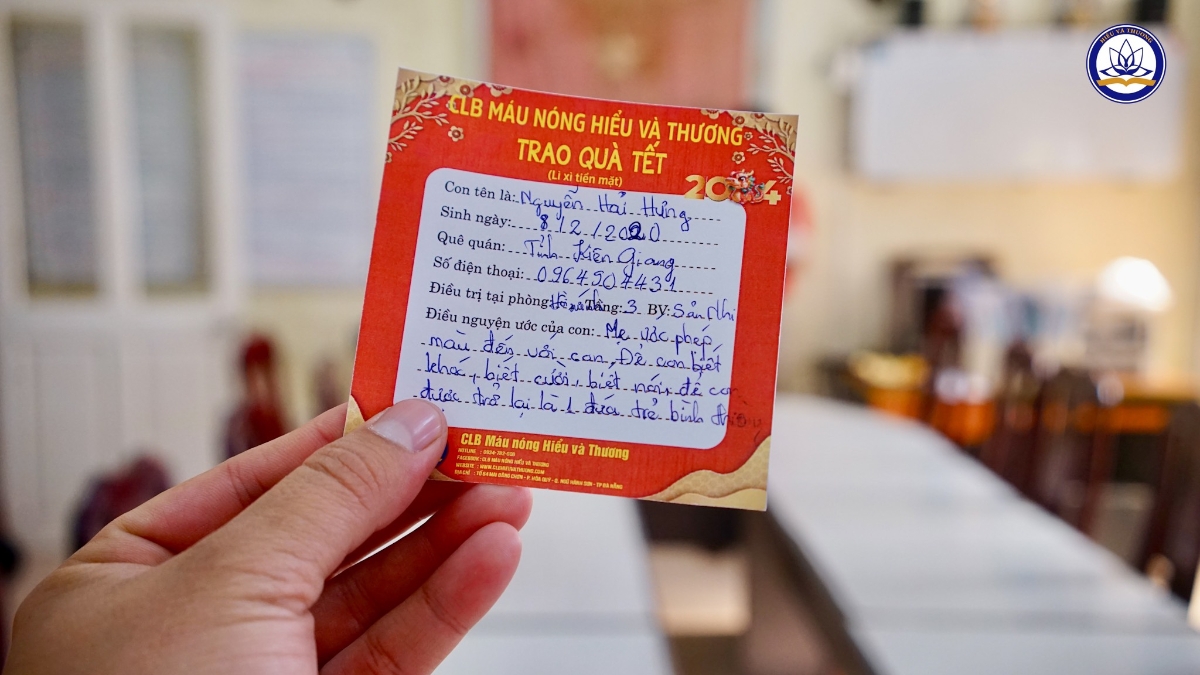 HIỂU VÀ THƯƠNG
CLB MÁU NÓNG HIỂU VÀ THƯƠNG
TRAO QUÀ TẾT
(Lì xì tiền mặt)
2024
Con tên là: Nguyễn Hải Hưng
Sinh ngày: 8/2/2020
Quê quán: Tỉnh Kiên Giang
Số điện thoại: 0964504431
Điều trị tại phòng: Tầng: 3 BV: Sản Nhi
Điều nguyện ước của con: Mẹ ước phép
màu đến với con, Để con biết
khóc, biết cười, biết nói, để con
được trở lại là 1 đứa trẻ bình
CLB Máu nóng Hiểu và Thương
HOTLINE :
FACEBOOK : CLB MÁU NÓNG HIỂU VÀ THƯƠNG
WEBSITE :
ĐỊA CHỈ :